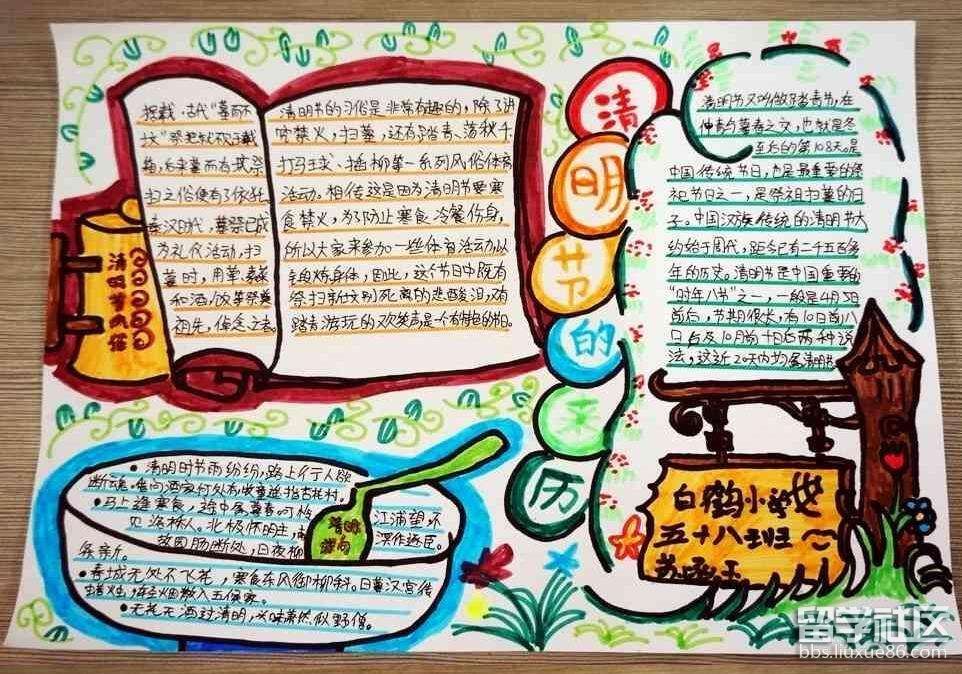 清明节的来历
清明节风俗
据载,古代"墓而不
坟"祭祀就
后来墓而有坟,祭
扫之俗便有了依托。
秦汉时代,墓祭已成
为礼仪活动,扫
墓时,
和酒/饭等祭奠
祖先,悼念之去。
清明节的习俗是非常有趣的,除了讲
究禁火,扫墓,还有踏青、荡秋千、
打马球、插柳等一系列风俗体育
活动。相传这是因为清明节要寒
食禁火,为了防止寒食冷餐伤身,
所以大家来参加一些体育活动以
锻炼身体,因此,这个节日中既有
祭扫新坟别死离的悲酸泪,又有
踏青游玩的欢笑声是一个有特色的节日。
清明节又叫做踏青节,在
仲春与暮春之交,也就是冬
至后的第108天。是
中国传统节日,也是最重要的祭
祀节日之一,是祭祖扫墓的日
子。中国汉族传统的清明节大
约始于周代,距今已有二千五百多
年的历史。清明节是中国重要的
"时年八节"之一,一般是4月5日
前后,节期很长,有10日前八
日后及10日前十日后两种说
法,这近20天内均属清明节。
清明
诗句
•清明时节雨纷纷,路上行人欲
断魂。借问酒家何处有牧童遥指杏花村。
•马上逢寒食,途中属暮春。可怜
江浦望,不
见洛桥人。北极怀明主,南
溟作逐臣。
故园肠断处,日夜柳
条新。
•春城无处不飞花,寒食东风御柳斜。日暮汉宫传
蜡烛,轻烟散入五侯家。
•无花无酒过清明,兴味萧然似野僧。
白鹤小学
五十八班
留学社区
bbs.liuxue86.com